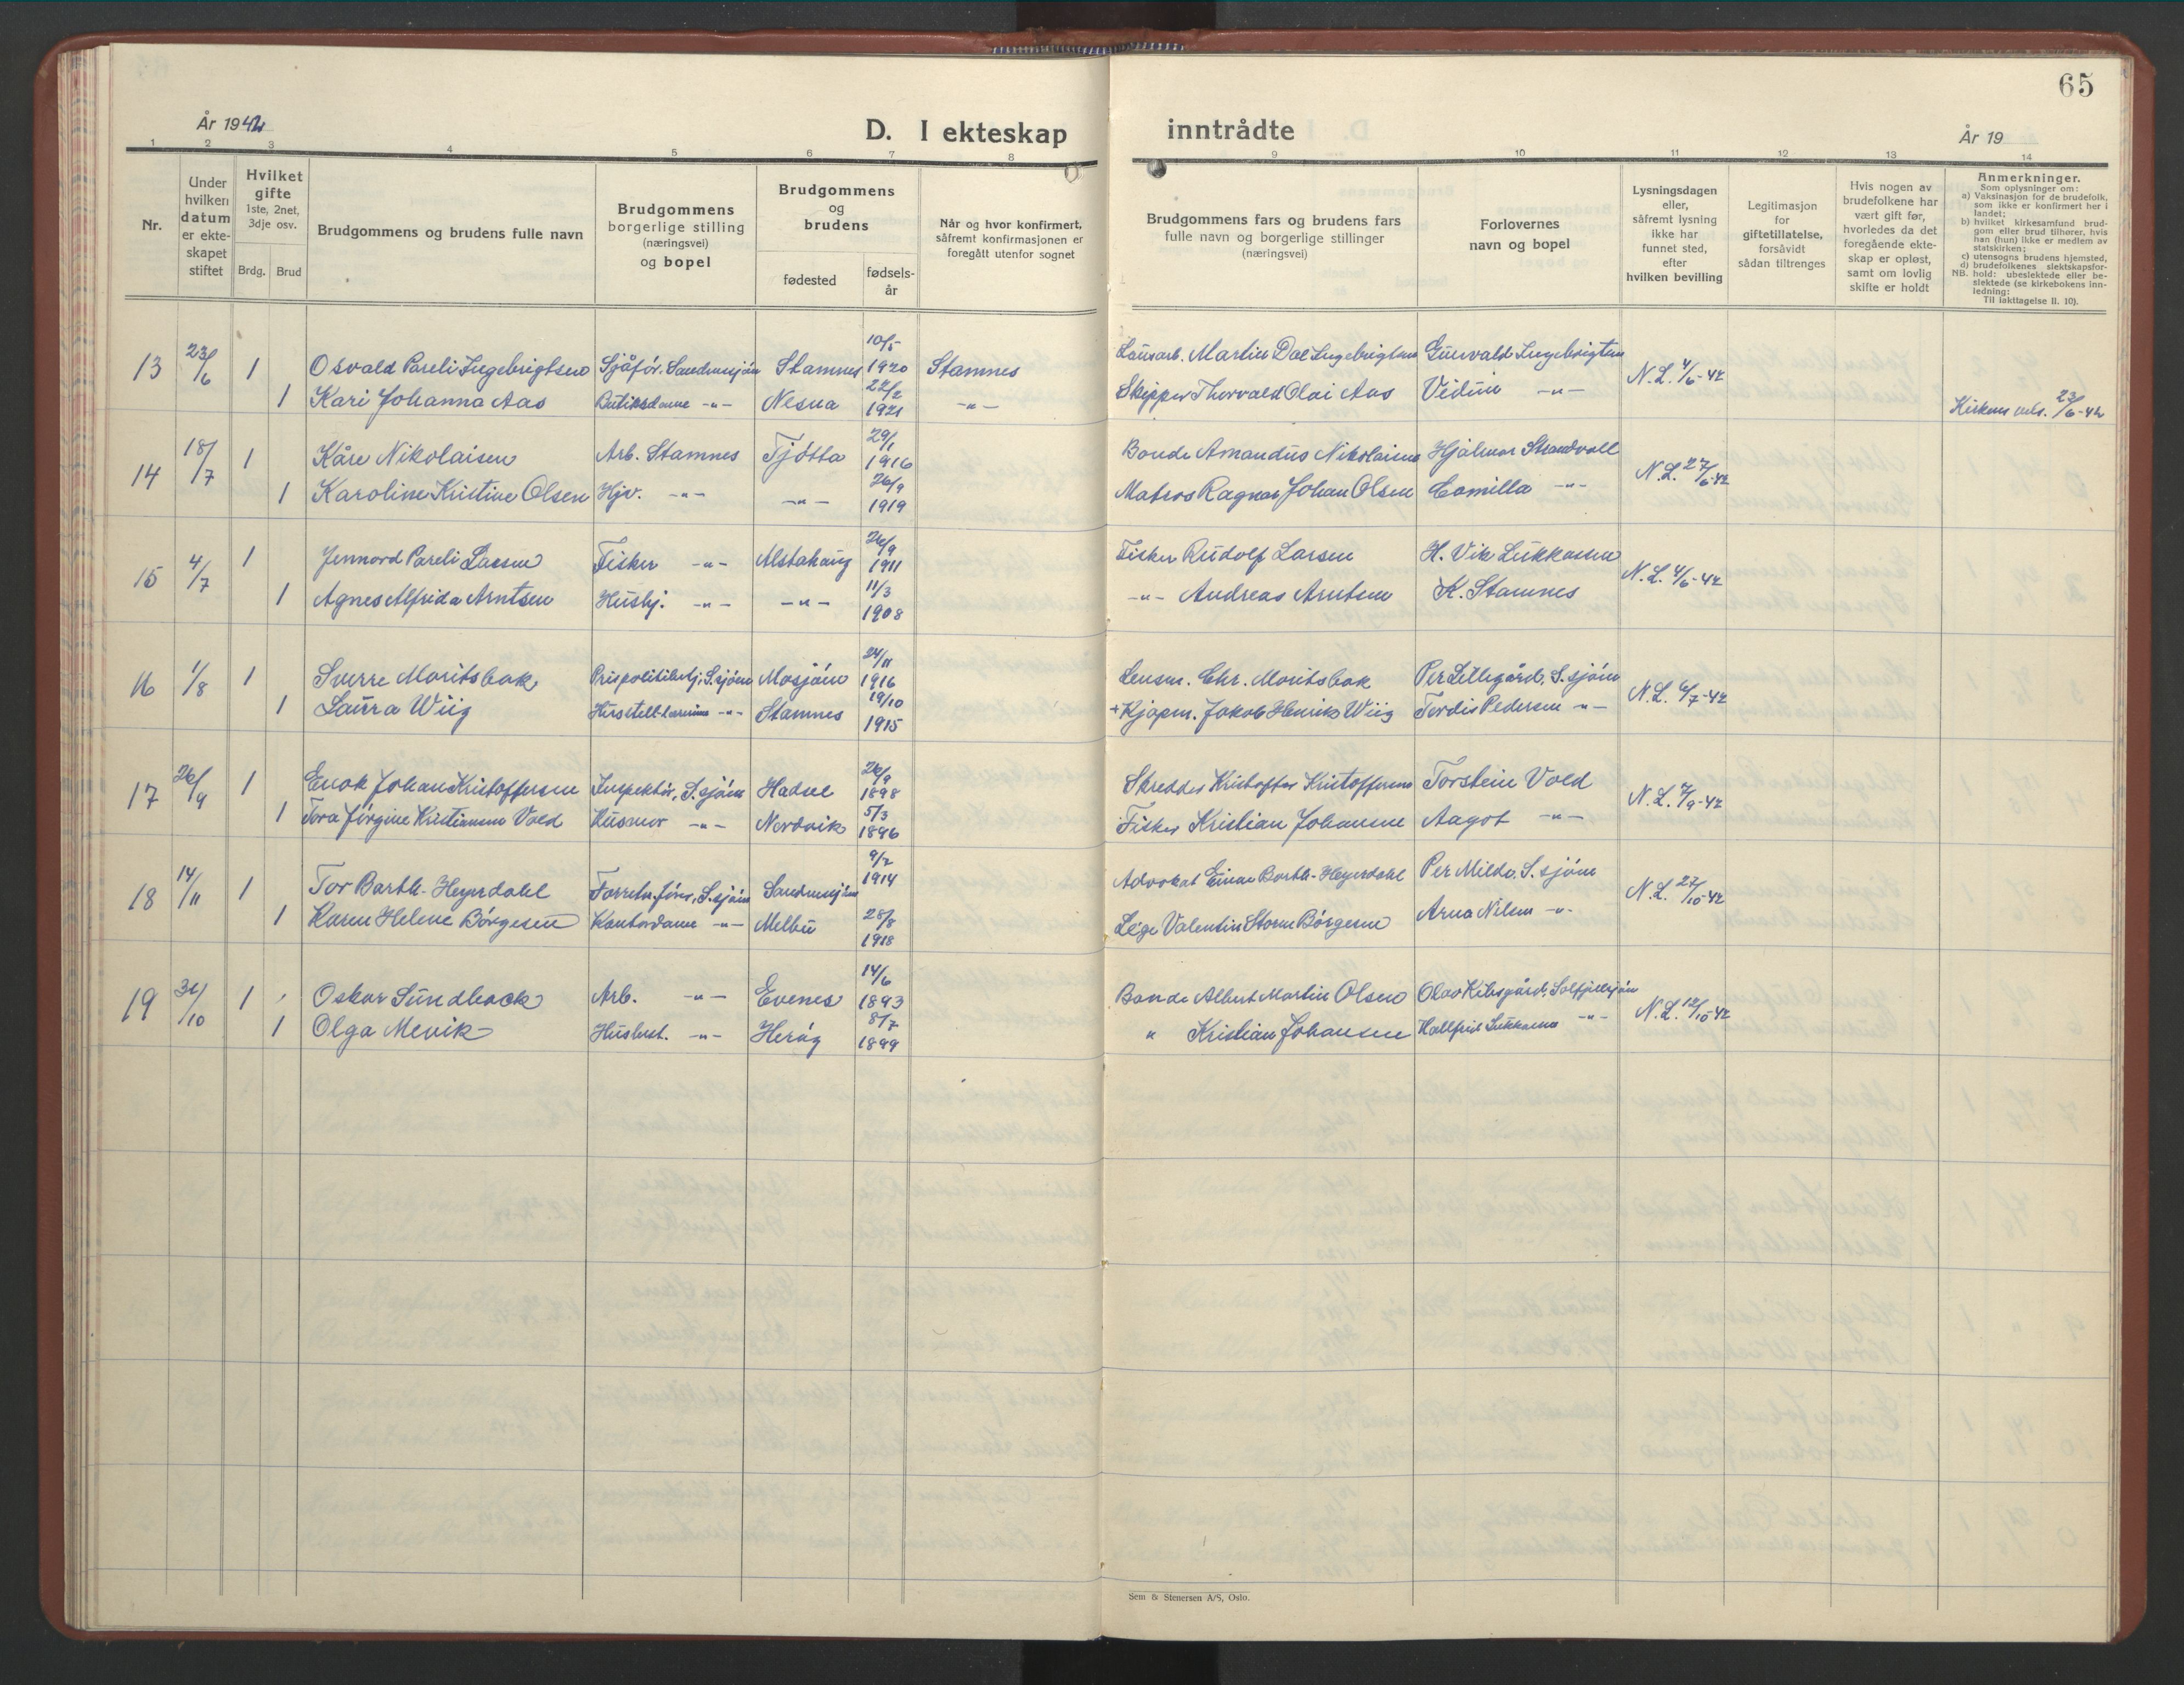 65
År 1942
D. I ekteskap inntrådte
År 19
1 2 3 4 5 6 7 8 9 10 11 12 13 14
Nr.
Under hvilken datum er ekteskapet stiftet
Hvilket gifte
1ste, 2net, 3dje osv.
Brdg. Brud
Brudgommens og brudens fulle navn
Brudgommens borgerlige stilling (næringsvei) og bopel
Brudgommens og brudens
fødested
fødselsår
Når og hvor konfirmert, såfremt konfirmasjonen er foregått utenfor sognet
Brudgommens fars og brudens fars fulle navn og borgerlige stillinger (næringsvei)
Forlovernes navn og bopel
Lysningsdagen eller, såfremt lysning ikke har funnet sted, efter hvilken bevilling
Legitimasjon for giftetillatelse, forsåvidt sådan tiltrenges
Hvis nogen av brudefolkene har vært gift før, hvorledes da det foregående ekteskap er opløst, samt om lovlig skifte er holdt
Anmerkninger.
Som oplysninger om:
a) Vaksinasjon for de brudefolk, som ikke er konfirmert her i landet;
b) hvilket kirkesamfund brudgom eller brud tilhører, hvis han (hun) ikke er medlem av statskirken;
c) utensogns brudens hjemsted,
d) brudefolkenes slektskapsforhold: ubeslektede eller beslektede (se kirkebokens innledning:
NB. Til iakttagelse II. 10).
13 23/6 1 Osvald Pareli Ingebrigtsen Sjåfør. Sandnessjøen Stamnes 10/5 1920 Stamnes Martin Dal Ingebrigtsen Gunvald Ingebrigtsen N.L. 4/6-42
1 Kari Johanna Aas Butikkdame -"- Nesna 22/2 1921 -"- Skipper Thorvald Olai Aas -"- 23/6-42
14 18/7 1 Kåre Nikolaisen Arb. Stamnes Tjøtta 29/1 1916 Bonde Amandus Nikolaisen Hjalmar Strandvoll N.L. 27/6-42
1 Karoline Kristine Olsen Hjv. -"- -"- 26/9 1919 Matros Ragnar Johan Olsen Camilla -"-
15 4/7 1 Jennord Pareli Larsen Fisker -"- Alstahaug 26/9 1911 Fisker Rudolf Larsen H. Vik Lukkassen N.L. 4/6-42
1 Agnes Alfrida Arntsen Hushj. -"- -"- 11/3 1908 -"- Andreas Arntsen K. Stamnes
16 1/8 1 Sverre Moritsbak S.sjøen Mosjøen 24/11 1916 Lensm. Chr. Moritsbak Per Lillegård, S.sjøen N.L. 6/7-42
1 Laura Wiig -"- Stamnes 19/10 1915 + Kjøpm. Jakob Henrik Wiig Tordis Pedersen -"-
17 26/9 1 Enok Johan Kristoffersen Inspektør, S.sjøen Hadsel 26/9 1898 Skredder Kristoffer Kristoffersen Torstein Vold N.L. 7/9-42
1 Tora Jørgine Kristiansen Vold Husmor -"- Nordvik 5/3 1896 Fisker Kristian Johansen Aagot -"-
18 14/11 1 Tor Barth-Heyerdahl S.sjøen Sandnessjøen 9/2 1914 Advokat Einar Barth-Heyerdahl Per Milde, S.sjøen N.L. 27/10-42
1 Karen Helene Børgesen Kontordame -"- Melbu 28/8 1918 Lege Valentin Storm Børgesen Arna Nilsen -"-
19 31/10 1 Oskar Sundback Arb. -"- Evenes 14/6 1893 Bonde Albert Martin Olsen Olav Kibsgård, N.L. 12/10-42
1 Olga Mevik Husbest. -"- Herøy 8/7 1899 " Kristian Johansen Hallfrid Lukkassen -"-
Sem & Stenersen A/S, Oslo.